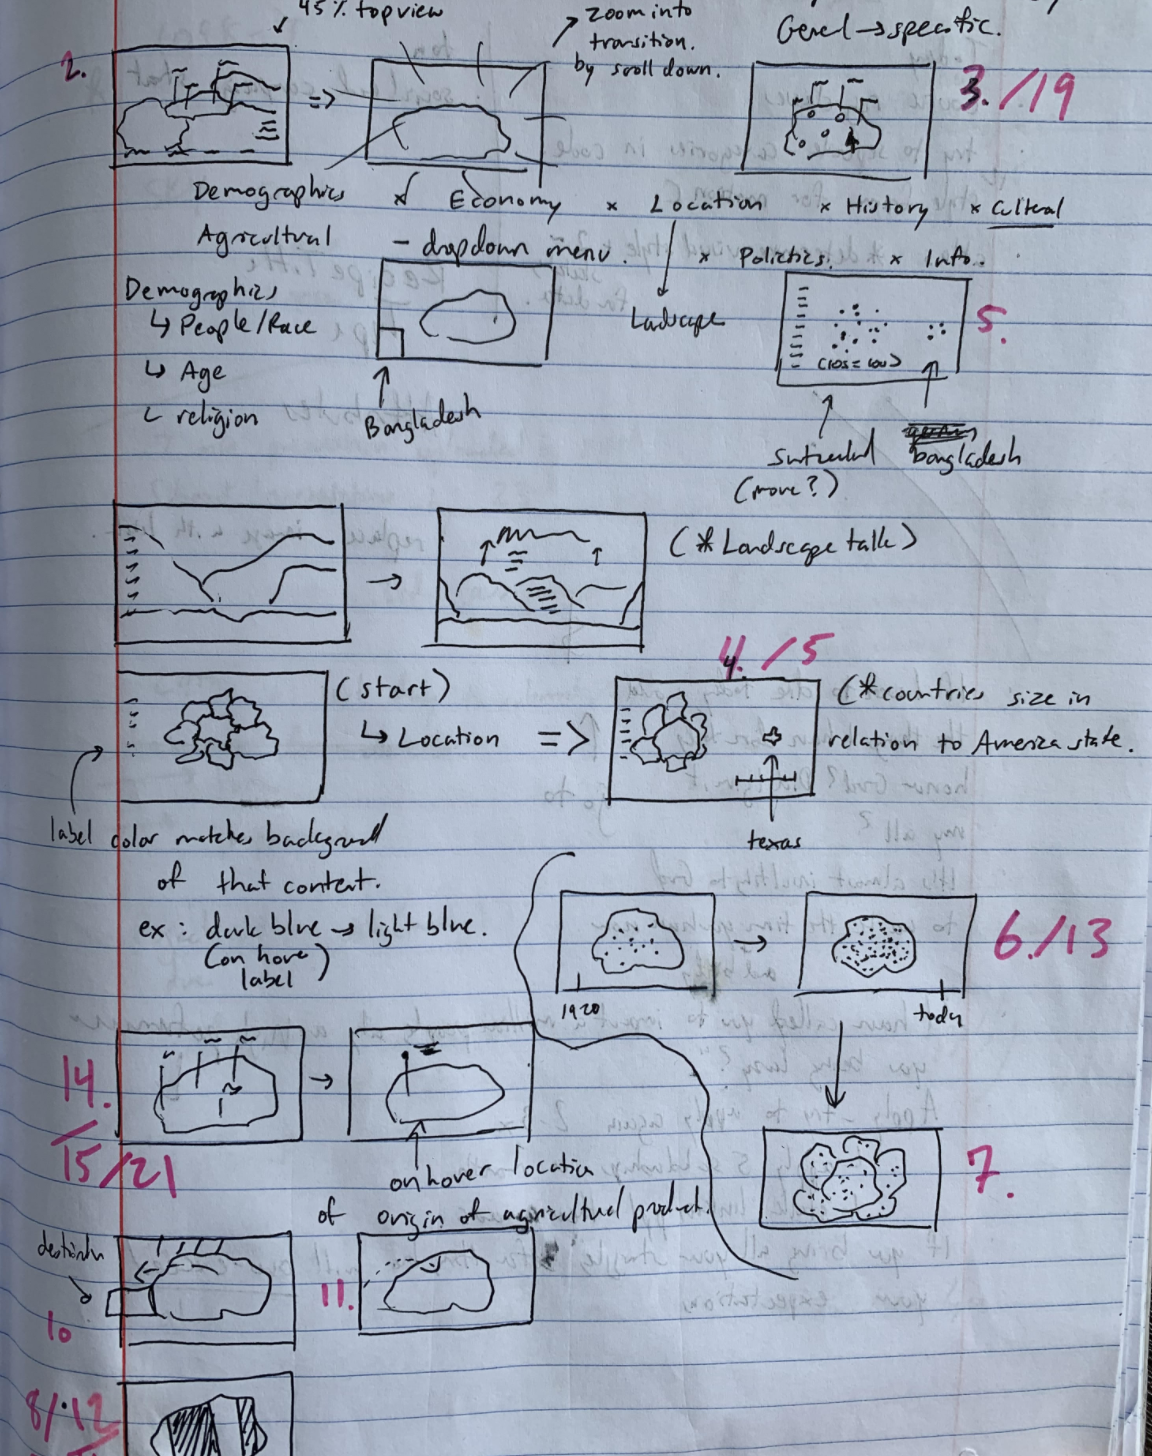 45% topview
zoom into
transition.
by scroll down.
Genel → specific.
2.
=>
3./19
Demographics x Economy x Location x History x Cultural
Agricultural - dropdown menu. x Polictics. x Info..
Demographics
↳ People/Race
↳ Age
↳ religion
Bangladesh
Ladscape
5.
bangladesh
(more?)
(* Landscape talk)
(start)
↳ Location =>
4./5
(* countries size in
relation to America state.
texas
label color matches backgroud
of that content.
ex: dark blue → light blue.
(on hove
label)
1920
today
6./13
14.
15/21
7.
on hover location
of origin of agricultural product.
10
11.
8/12